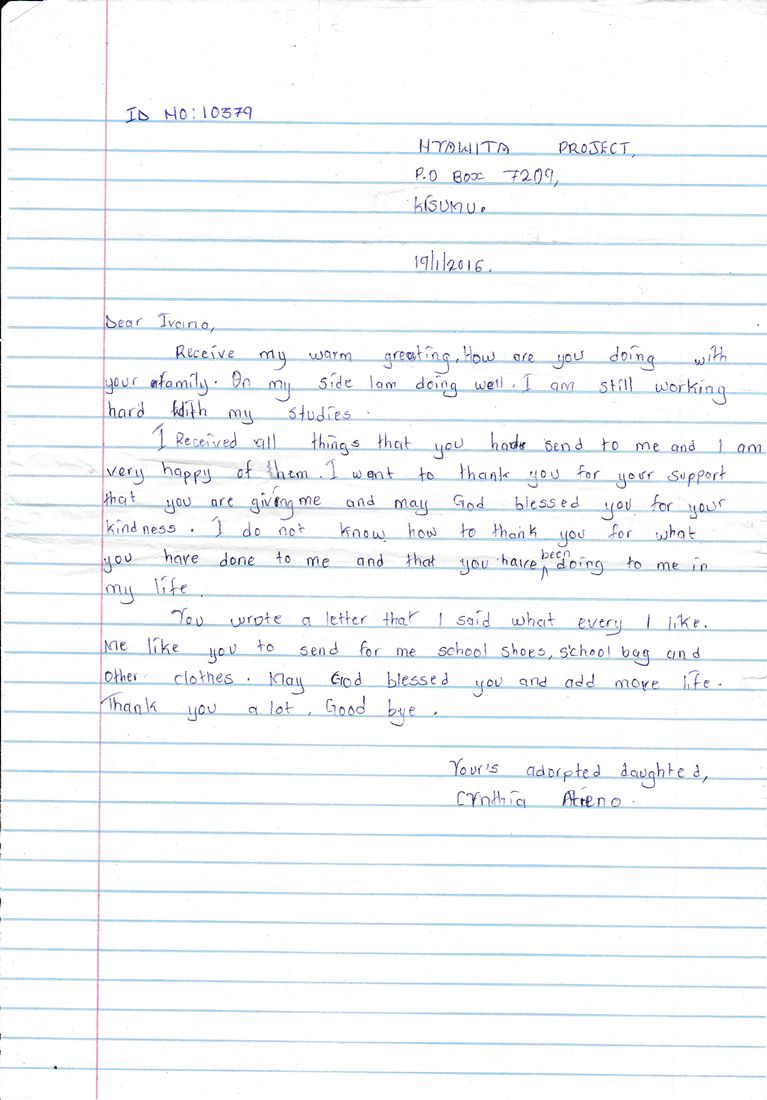 ID NO: 10379
NYAWITA PROJECT,
P.O BOX 7209,
KISUMU.
19/1/2016.
Dear Ivana,
Receive my warm greeting. How are you doing with
your family. On my side Iam doing well. I am still working
hard With my studies.
I Received all things that you have send to me and I am
very happy of them. I want to thank you for your support
that you are giving me and may God blessed you for your
kindness. I do not know how to thank you for what
you have done to me and that you have been doing to me in
my life.
You wrote a letter that I said what every I like.
Me like you to send for me school shoes, school bag and
other clothes. May God blessed you and add more life.
Thank you a lot. Good bye.
Your's adorpted daughted,
Cynthia Atieno.